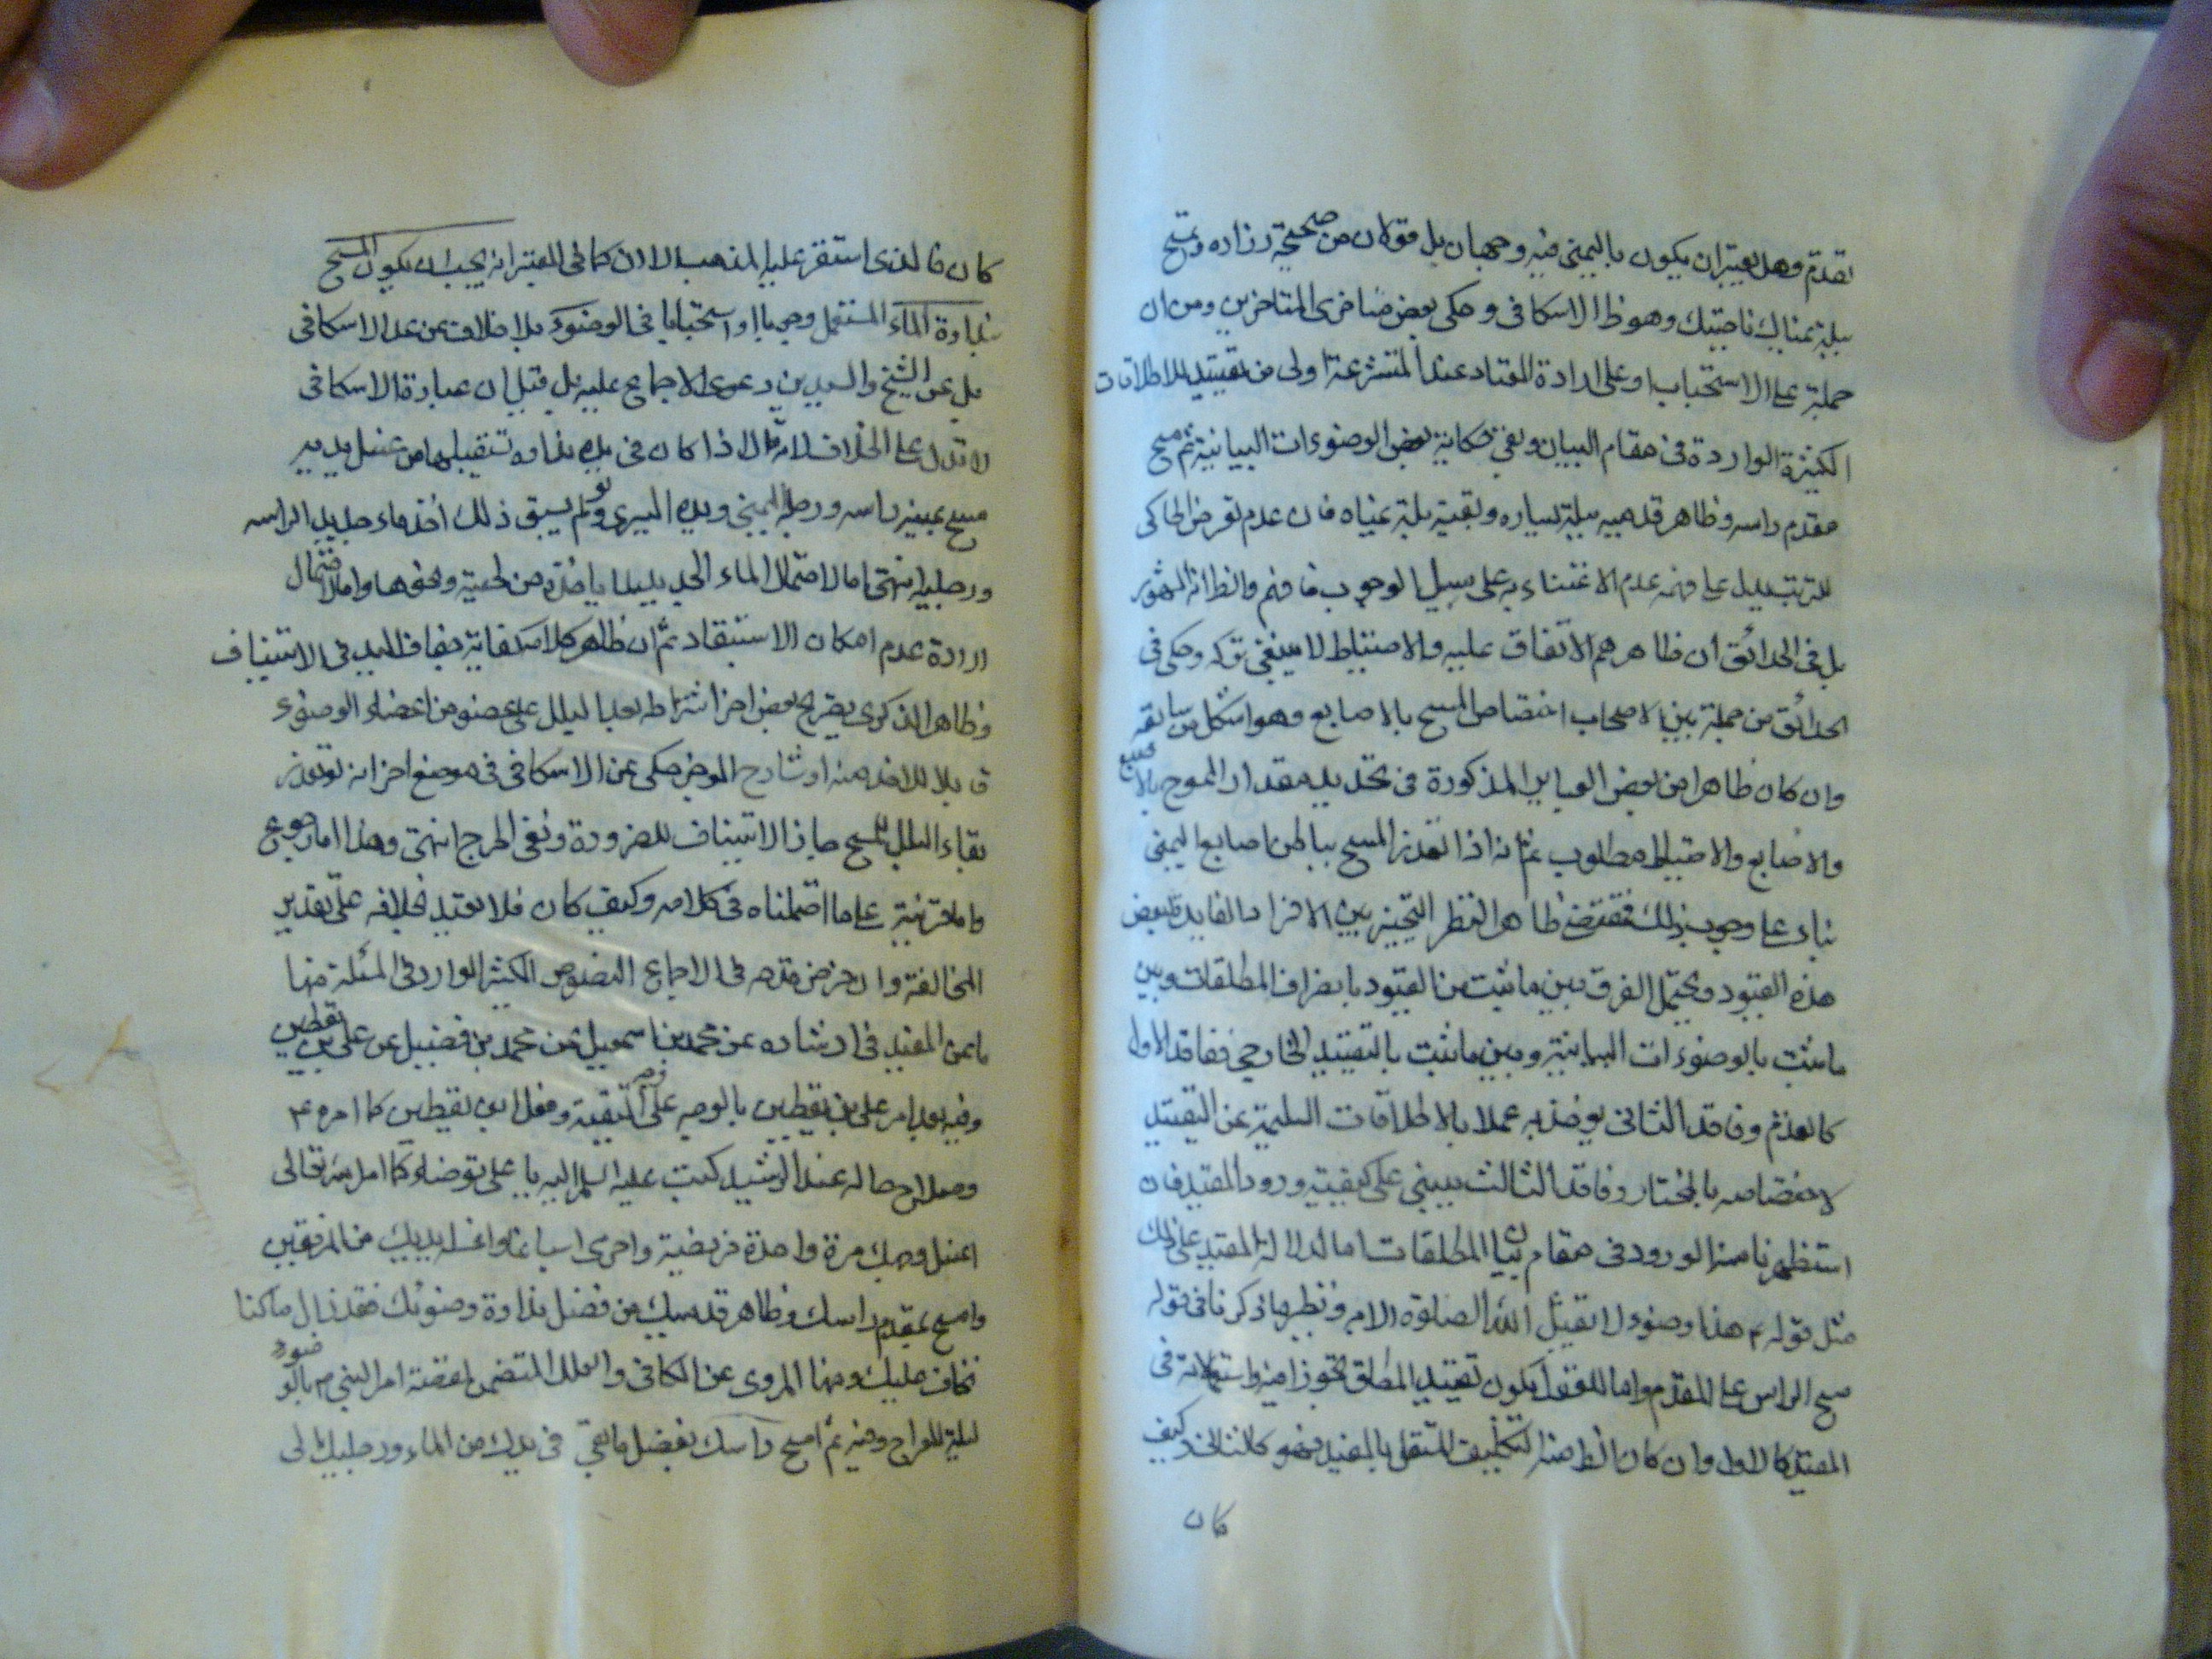 تقدم وهل يعتبر ان يكون باليمنى فيه وجهان بل قولان من صحيحة زراره وتمسح
ببلة يمناك ناصيتك وهو ظ الاسكافى وحكى بعض متاخرى المتاخرين ومن ان
حملة على الاستحباب او على ارادة المعتاد عند المتشرعة اولى من تقييد الاطلاقات
الكثيرة الواردة فى مقام البيان وفى حكاية بعض الوضوءات البيانية ثم مسح
مقدم راسه وظاهر قدميه ببلة يساره وبقية بلة يمناه فان عدم تعرض الحاكى
للترتيب يدل على فهمه عدم الاعتناء به على سبيل الوجوب فافهم والظ انه المشهور
بل فى الحدائق ان ظاهرهم الاتفاق عليه والاحتياط لا ينبغى تركه وحكى فى
الحدائق من جملة بين الاصحاب اختصاص المسح بالاصابع وهو اشكل من سابقه
وان كان ظاهرا من بعض العباير المذكورة فى تحديد مقدار الممسوح بالاصبع
والاصابع والاحتياط مطلوب ثم انه اذا تعذر المسح بباطن اصابع اليمنى
بناء على وجوب ذلك فمقتضى ظاهر النظر التخيير بين الافراد الفاقدة لبعض
هذه القيود ويحتمل الفرق بين ما ثبت من القيود بانصراف المطلقات وبين
ما ثبت بالوضوءات البيانية وبين ما ثبت بالتقييد الخارجى ففاقد الاول
كالعدم وفاقد الثانى يوخذ به عملا بالاطلاقات السليمة عن التقييد
لاختصاصه بالمختار وفاقد الثالث يبتنى على كيفية ورود المقيد فان
استظهرنا منه الورود فى مقام بيان المطلقات اما لدلالة المقيد على ذلك
مثل قوله ع هذا وضوء لا يقبل الله الصلوة الا به ونظير ما ذكرنا فى قوله
مسح الراس على المقدم واما للـ يكون تقييد المطلق تجوزا فيه واستعماله فى
المقيد كالاول وان كان الظ منه التكليف المستقل بالمقيد فهو كالثانى وكيف
كان
كان فالذى استقر عليه المذهب الان كما فى المعتبر انه يجب ان يكون المسح
بنداوة الماء المستعمل وجوبا او استحبابا فى الوضوء بلا خلاف عن عدا الاسكافى
بل عن الشيخ والسيدين دعوى الاجماع عليه بل قيل ان عبارة الاسكافى
لا تدل على الخلاف لانه قال اذا كان فى يده نداوة تستبقيها من غسل يديه
مسح بيمينه راسه ورجله اليمنى وبيده اليسرى ولو لم يستبق ذلك اخذ ماء جديدا لراسه
ورجليه انتهى اما لاحتمال الماء الجديد لما ياخذه من لحيته ونحوها واما لاحتمال
ارادة عدم امكان الاستبقاء ثم ان ظاهر كلامه كفاية جفاف اليد فى الاستيناف
وظاهر الذكرى تصريح بعض اخر اشتراطه بعد البلل على عضو من اعضاء الوضوء
قابلا للاخذ منه او شارح الموجز حكى عن الاسكافى فى موضع اخر انه لو تعذر
بقاء البلل للمسح جاز الاستيناف للضرورة ونفى الحرج انتهى وهذا اما رجوع
واما قرينة على ما احتملناه فى كلامه وكيف كان فلا يعتد بخلافه على تقدير
المخالفة وان فرض قدحه فى الاجماع النصوص الكثيرة الواردة فى المسئلة منها
ما عن المفيد فى ارشاده عن محمد بن اسمعيل عن محمد بن فضيل عن على بن يقطين
وفيه بعد امر على بن يقطين بالوضوء على التقية وفعل ابن يقطين كما امره ع
وصلاح حاله عند الرشيد كتب عليه السلم اليه يا على توضاء كما امر الله تعالى
اغسل وجهك مرة واحدة فريضة واخرى اسباغا واغسل يديك من المرفقين
وامسح بمقدم راسك وظاهر قدميك من فضل نداوة وضوئك فقد زال ما كنا
نخاف عليك ومنها المروى عن الكافى والعلل المتضمن لقصة امر النبى ص بالوضوء
ليلة المعراج وفيه ثم امسح راسك بفضل ما بقى فى يدك من الماء ورجليك الى